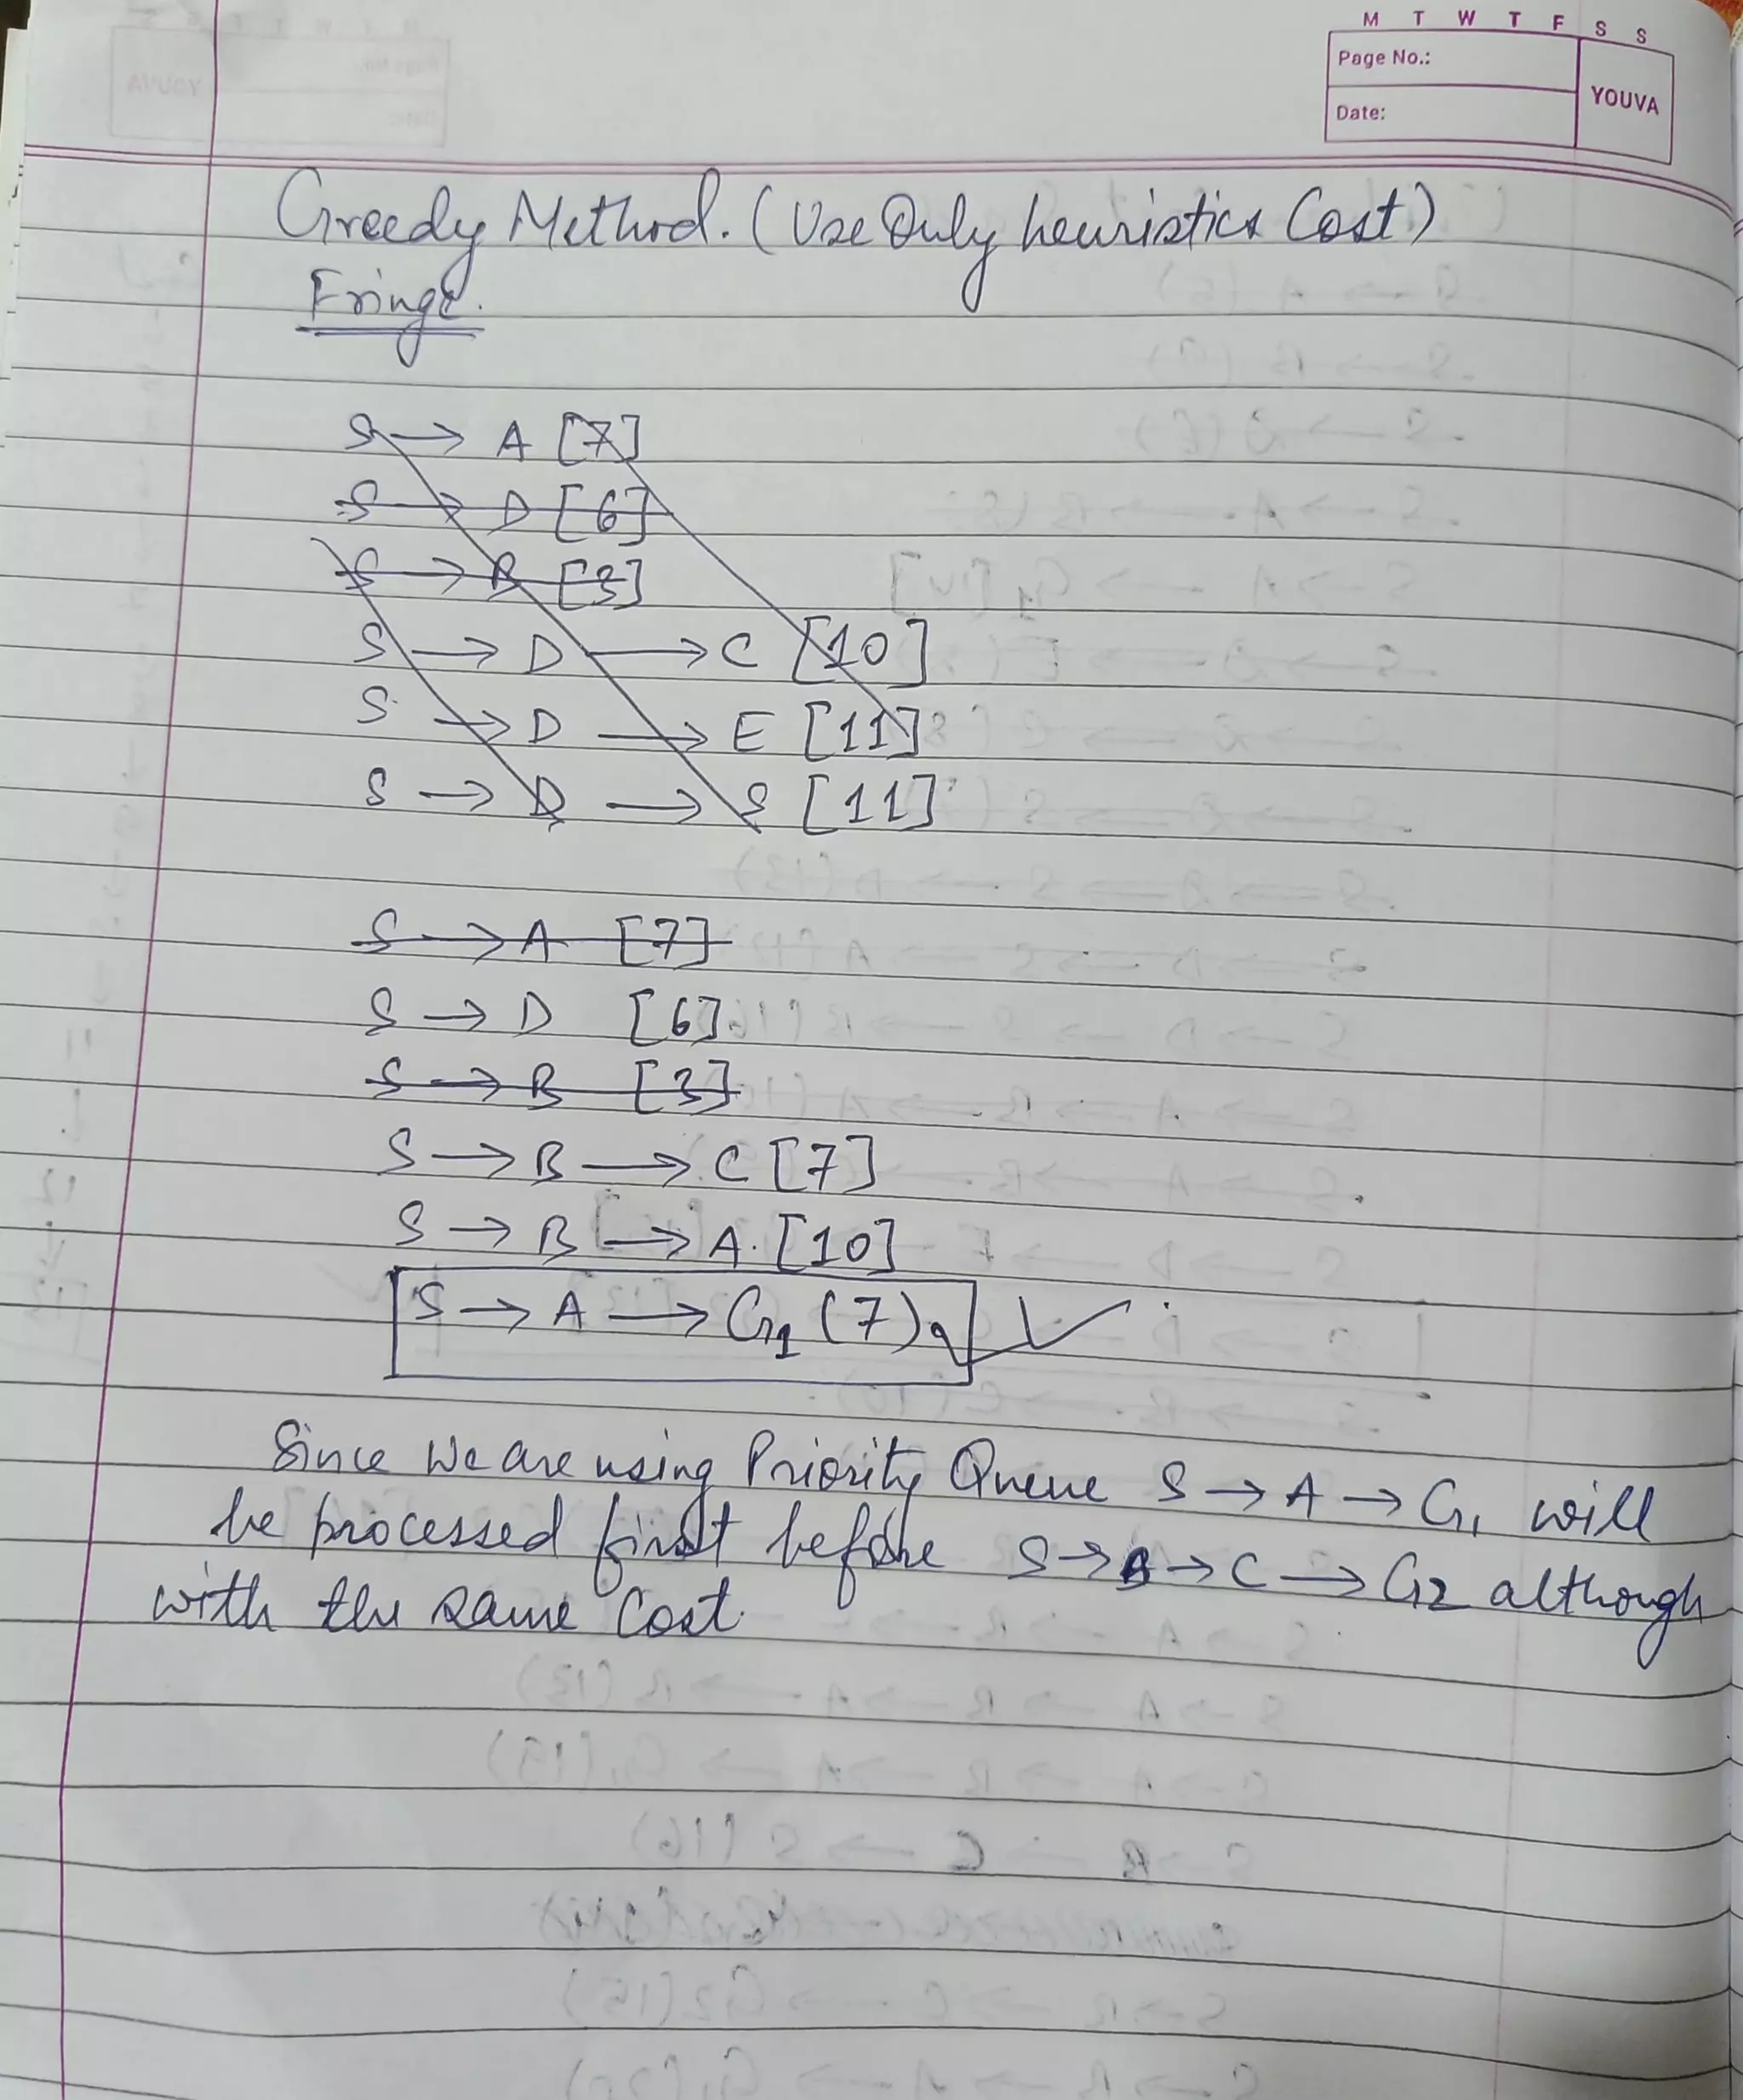 M T W T F S S
Page No.:
YOUVA
Date:
Greedy Method. (Use Only heuristics Cost)
Fringe.
S → A [7]
S → D [6]
S → B [3]
S → D → C [10]
S → D → E [11]
S → D → S [11]
S → A [7]
S → D [6]
S → B [3]
S → B → C [7]
S → B → A. [10]
S → A → G1 (7)
Since We are using Priority Queue S → A → G1 will
be processed first before S → B → C → G2 although
with the same Cost.